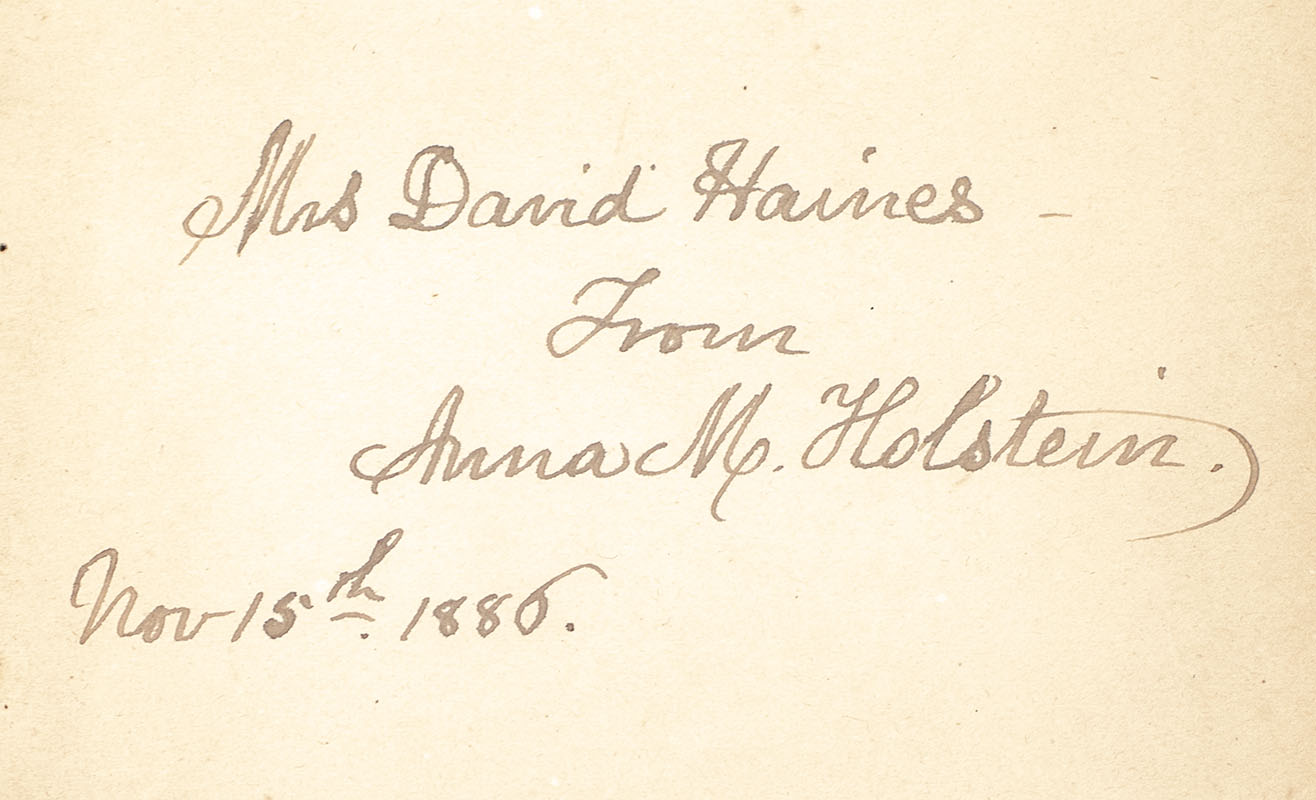 Mrs David Haines –
From
Anna M. Holstein.
Nov 15th. 1886.